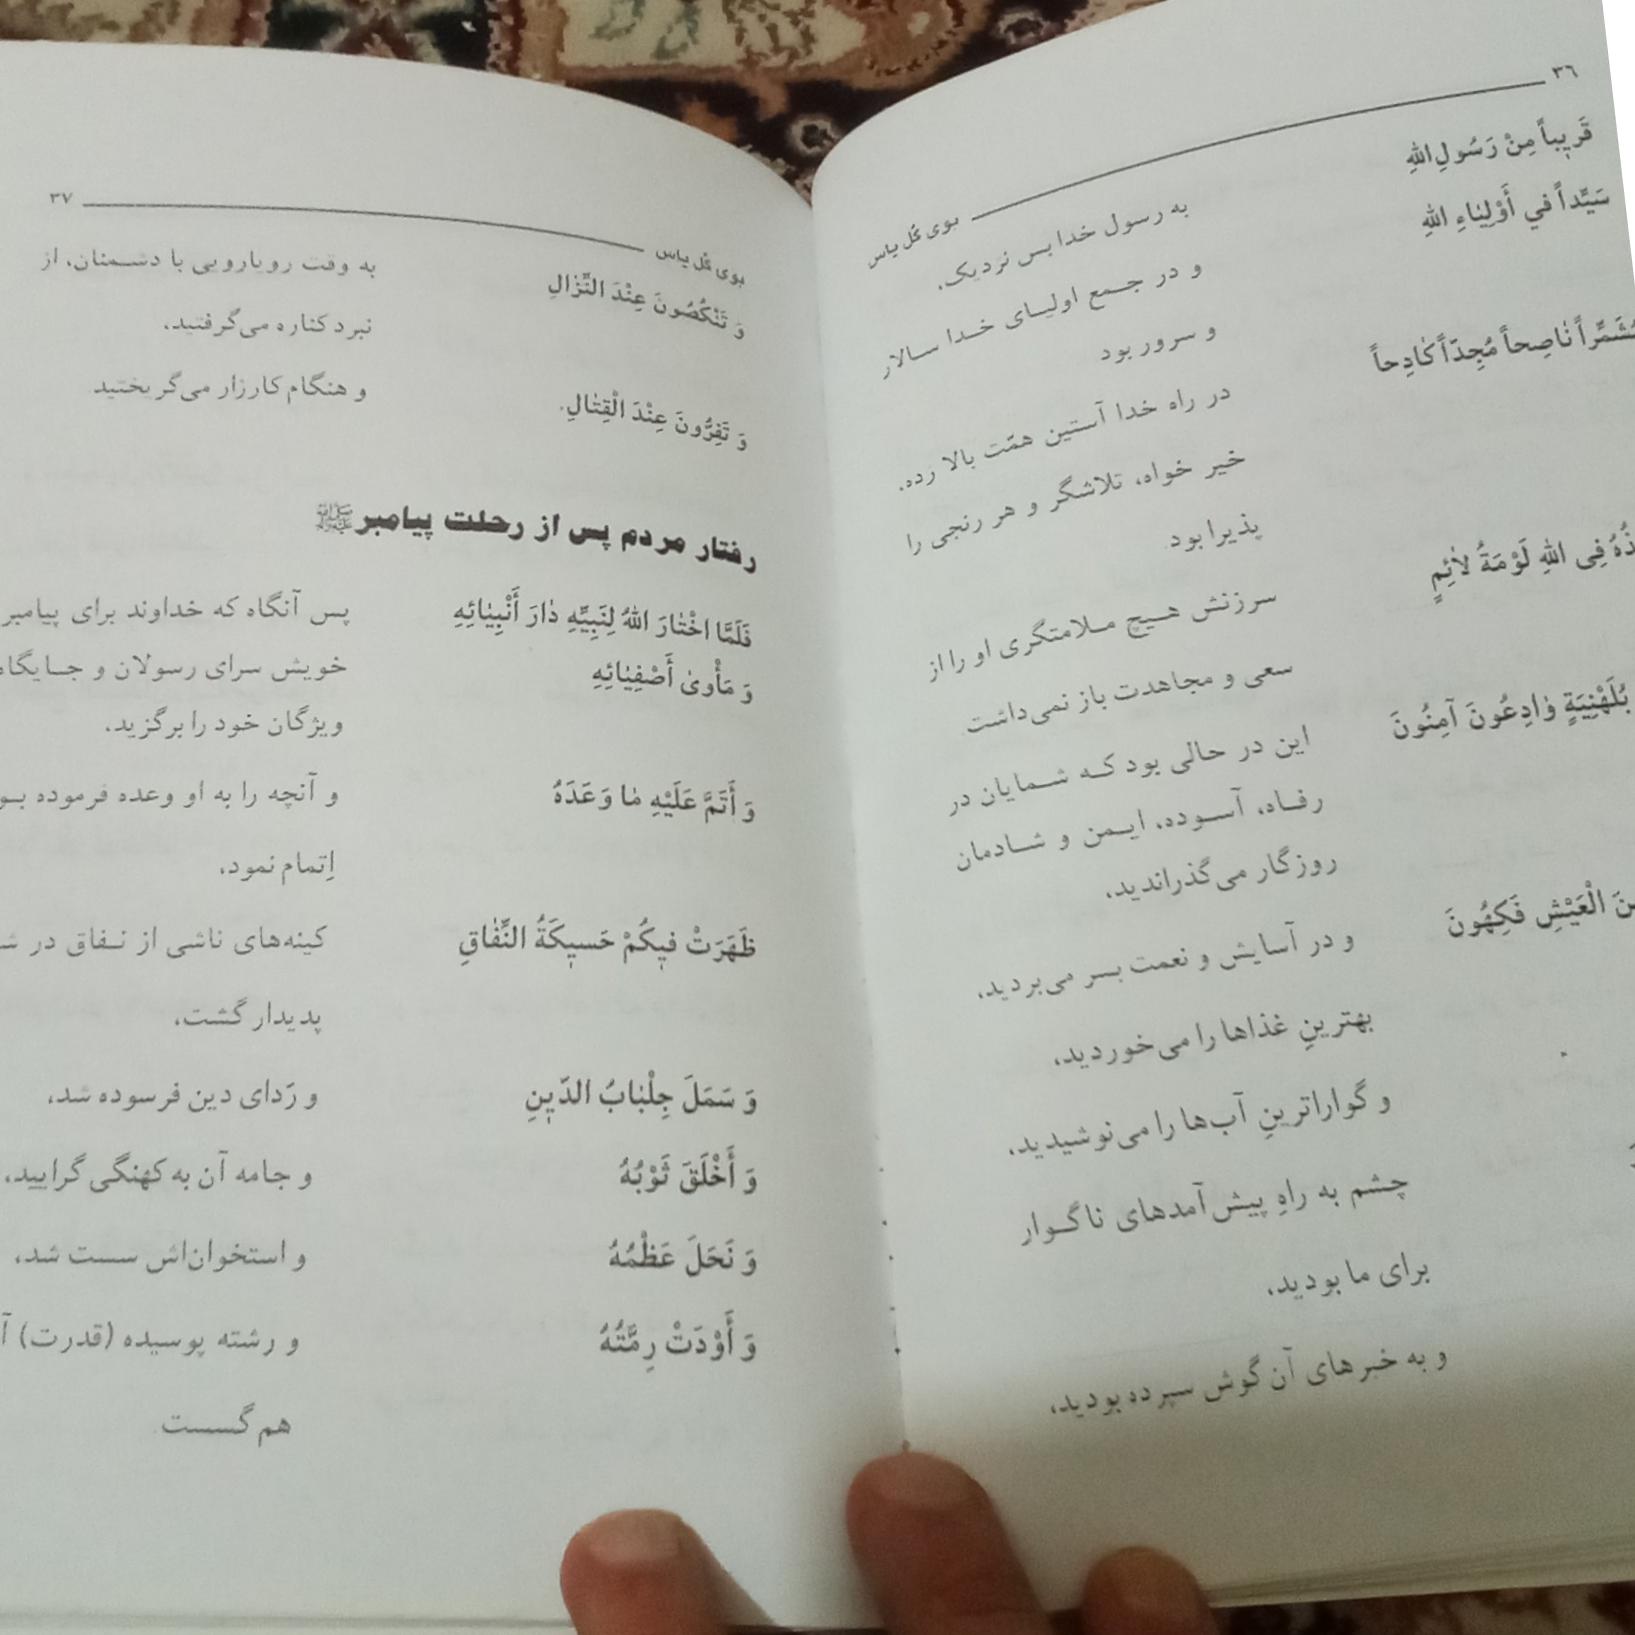 ٣٦
بوی گل یاس
قَریٖباً مِنْ رَسُولِ اللهِ
به رسول خدا بس نزدیک،
سَیِّداً في أَوْلِیٰاءِ اللهِ
و در جمع اولیای خدا سالار
و سرور بود
نٰاصِحاً مُجِدّاً کٰادِحاً
در راه خدا آستین همّت بالا زده،
خیر خواه، تلاشگر و هر رنجی را
پذیرا بود.
فِی اللهِ لَوْمَةُ لاٰئِمٍ
سرزنش هیچ ملامتگری او را از
سعی و مجاهدت باز نمی‌داشت
بُلَهْنِیَةٍ وٰادِعُونَ آمِنُونَ
این در حالی بود که شمایان در
رفاه، آسوده، ایمن و شادمان
روزگار می‌گذراندید،
الْعَیْشِ فَکِهُونَ
و در آسایش و نعمت بسر می‌بردید،
بهترینِ غذاها را می‌خوردید،
و گواراترینِ آب‌ها را می‌نوشیدید،
چشم به راهِ پیش‌آمدهای ناگوار
برای ما بودید،
و به خبرهای آن گوش سپرده بودید،
بوی گل یاس
٣٧
وَ تَنْکُصُونَ عِنْدَ النِّزٰالِ
به وقت رویارویی با دشمنان، از
نبرد کناره می‌گرفتید،
وَ تَفِرُّونَ عِنْدَ الْقِتٰالِ.
و هنگام کارزار می‌گریختید
رفتار مردم پس از رحلت پیامبر ﷺ
فَلَمَّا اخْتٰارَ اللهُ لِنَبِیِّهِ دٰارَ أَنْبِیٰائِهِ
پس آنگاه که خداوند برای پیامبر
وَ مَأْوىٰ أَصْفِیٰائِهِ
خویش سرای رسولان و جایگاه
ویژگان خود را برگزید،
وَ أَتَمَّ عَلَیْهِ مٰا وَعَدَهُ
و آنچه را به او وعده فرموده
اِتمام نمود،
ظَهَرَتْ فیٖکُمْ حَسیٖکَةُ النِّفٰاقِ
کینه‌های ناشی از نفاق در
پدیدار گشت،
وَ سَمَلَ جِلْبٰابُ الدّیٖنِ
و رَدای دین فرسوده شد،
وَ أَخْلَقَ ثَوْبُهُ
و جامه آن به کهنگی گرایید،
وَ نَحَلَ عَظْمُهُ
و استخوان‌اش سست شد،
وَ أَوْدَتْ رِمَّتُهُ
و رشته پوسیده (قدرت)
هم گسست